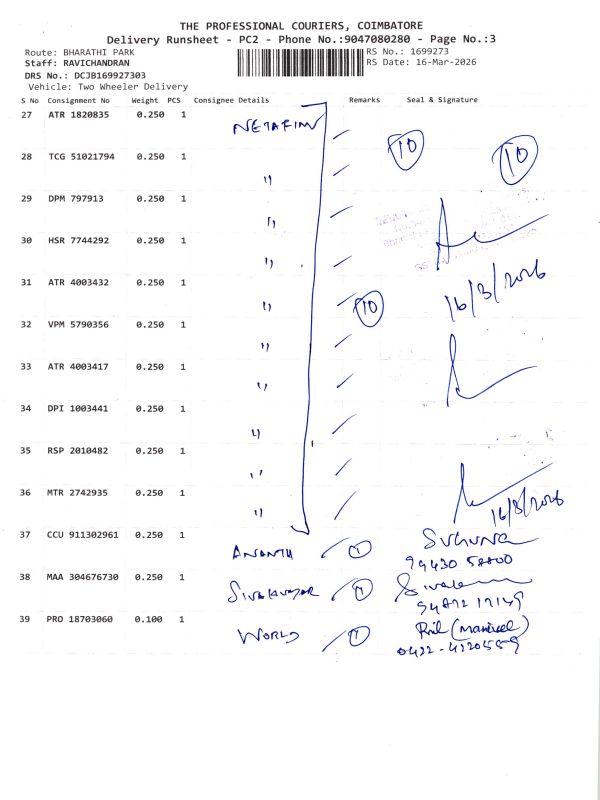 THE PROFESSIONAL COURIERS, COIMBATORE
Delivery Runsheet - PC2 - Phone No.:9047080280 - Page No.:3
Route: BHARATHI PARK
RS No.: 1699273
Staff: RAVICHANDRAN
RS Date: 16-Mar-2026
DRS No.: DCJB169927303
Vehicle: Two Wheeler Delivery
S No Consignment No Weight PCS Consignee Details Remarks Seal & Signature
27 ATR 1820835 0.250 1 NETAFIM
10 10
28 TCG 51021794 0.250 1 "
29 DPM 797913 0.250 1 "
30 HSR 7744292 0.250 1 "
16/3/2026
31 ATR 4003432 0.250 1 " 10
32 VPM 5790356 0.250 1 "
33 ATR 4003417 0.250 1 "
34 DPI 1003441 0.250 1 "
35 RSP 2010482 0.250 1 "
36 MTR 2742935 0.250 1 "
16/3/2026
37 CCU 911302961 0.250 1 ANANTH 1 SUGUNA
38 MAA 304676730 0.250 1 SIVAKUMAR 1
39 PRO 18703060 0.100 1 WORLD 1
0422-4220559